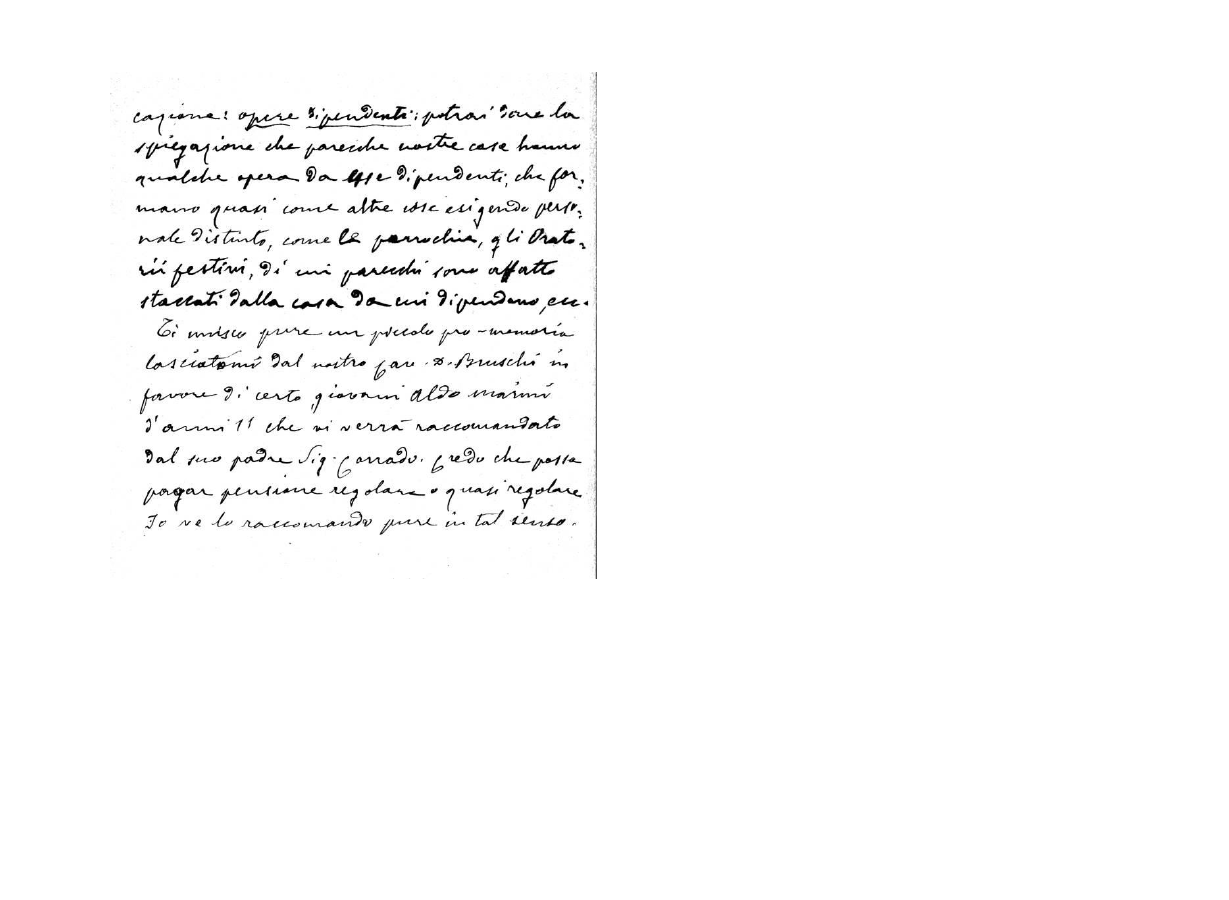 cazione: opere dipendenti: potrai dare la
spiegazione che parecche nostre case hanno
qualche opera da esse dipendenti, che for-
mano quasi come altre case esigendo perso-
nale distinto, come le parrochie, gli Orato-
rii festivi, di cui parecchi sono affatto
staccati dalla casa da cui dipendono, ecc.
Ti unisco pure un piccolo pro-memoria
lasciatomi dal nostro car. D. Bruschi in
favore di certo giovani Aldo Marini
d'anni 11 che vi verrà raccomandato
dal suo padre Sig. Corrado. Credo che possa
pagar pensione regolare o quasi regolare
Io ve lo raccomando pure in tal senso.